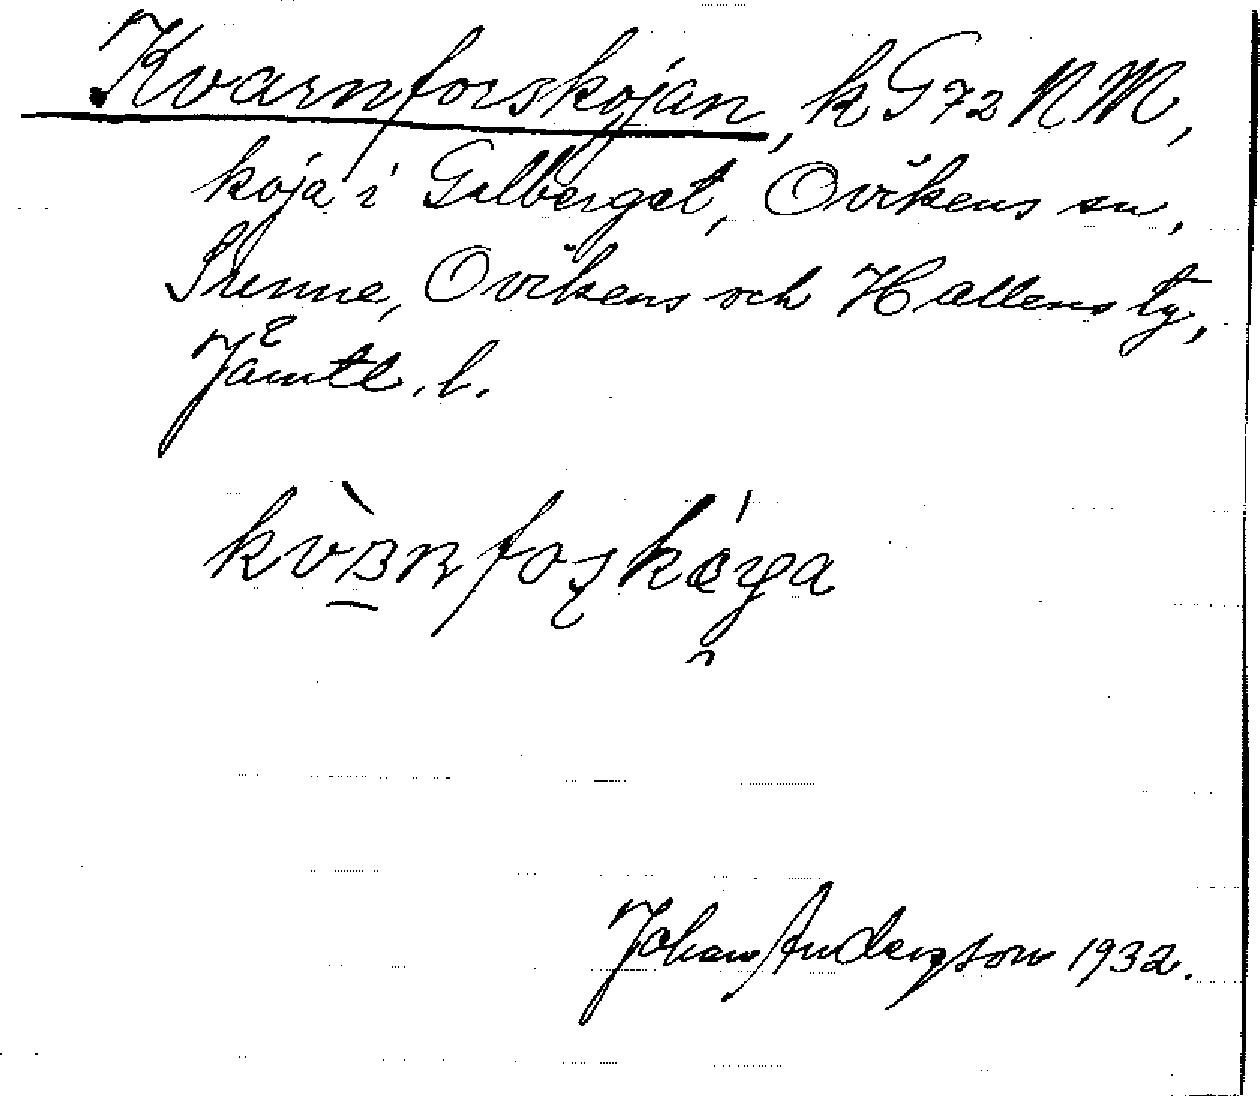 Kvarnforskojan, k G72 NM,
koja i Galberget, Ovikens sn,
Sunne, Ovikens och Hallens tg,
Jämtl. l.
Johan Anderzson 1932.